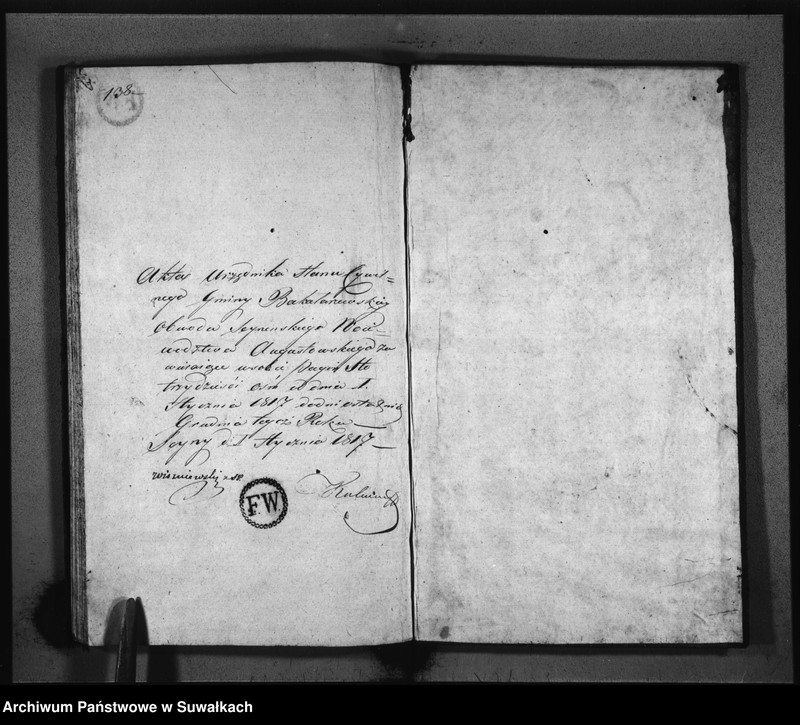 138.
Akta Urzędnika Stanu Cywil=
nego Gminy Bakałarzewskiey
Obwodu Seynenskiego Woie=
wodztwa Augustowskiego za
wieraiące w sobie pagin Sto
trzydzieści ośm od dnia 1.
Stycznia 1817 do dni ostatnich
Grudnia tegoż Roku —
Seyny d. 1 Stycznia 1817 —
F.W.
Archiwum Państwowe w Suwałkach